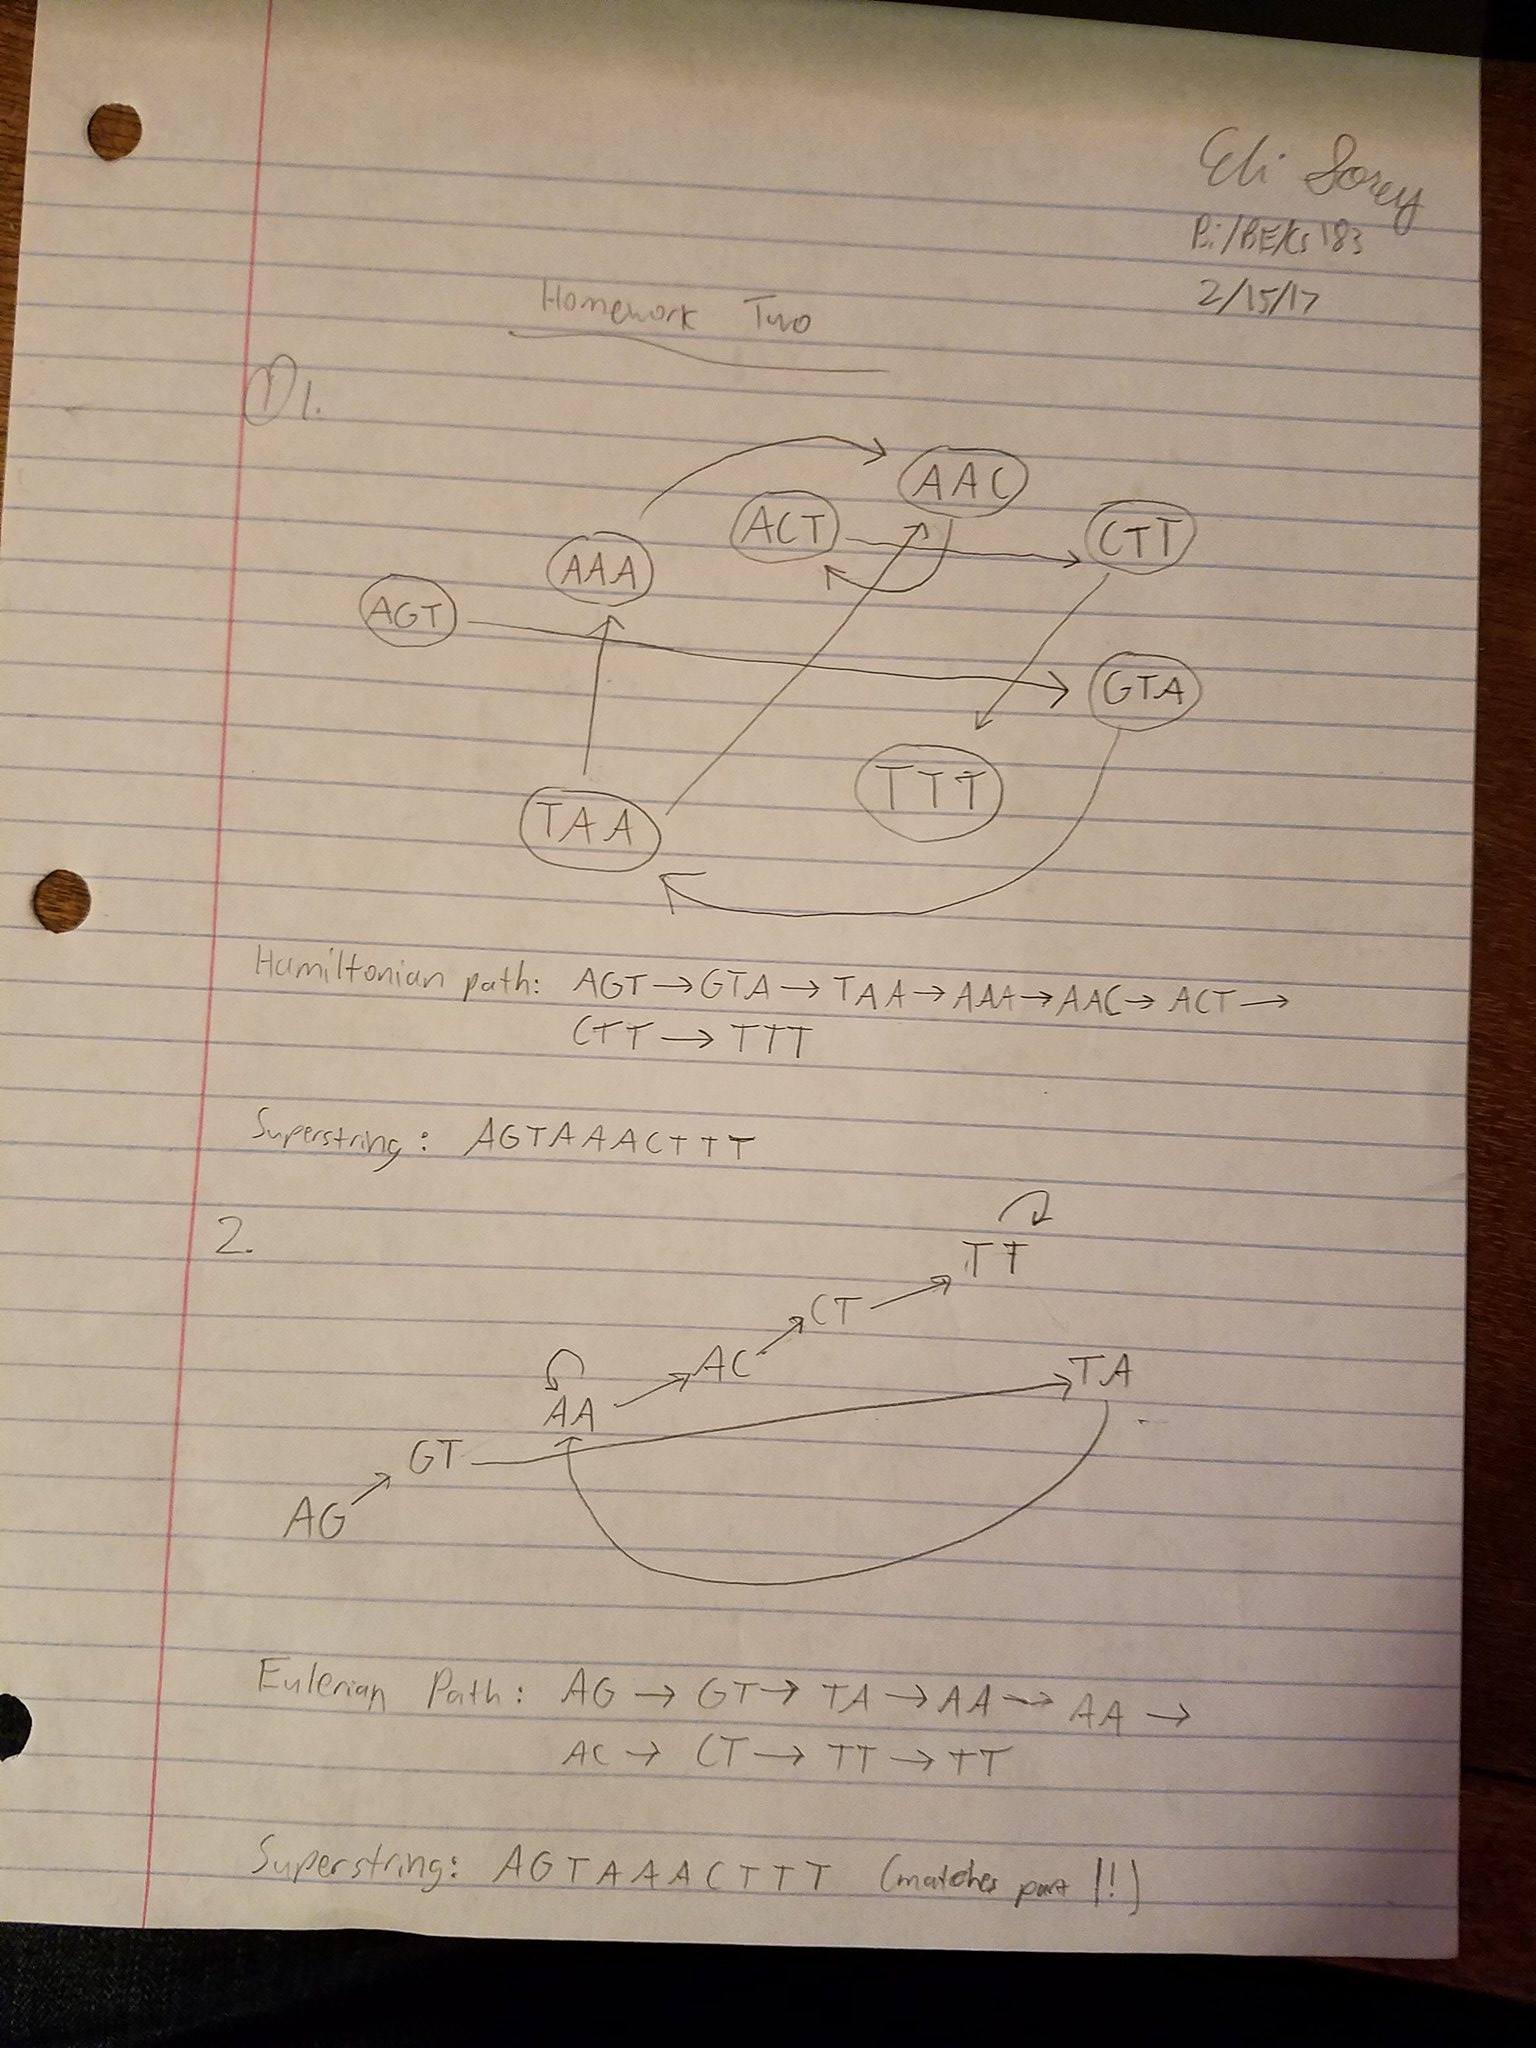 Eli Sorey
Bi/BE/Cs 183
2/15/17
Homework Two
① 1.
AAC
ACT
CTT
AAA
AGT
GTA
TTT
TAA
Hamiltonian path: AGT → GTA → TAA → AAA → AAC → ACT →
CTT → TTT
Superstring: AGTAAACTTT
2.
TT
CT
AC
TA
AA
GT
AG
Eulerian Path: AG → GT → TA → AA → AA →
AC → CT → TT → TT
Superstring: AGTAAACTTT (matches part 1!)